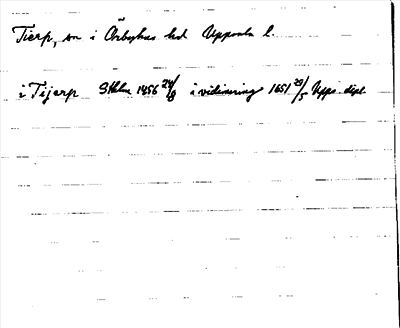 Tierp, sn i Örbyhus hd Uppsala l.
i Tijerp Sthlm 1456 24/8 i vidimering 1651 29/5 Upps. dipl